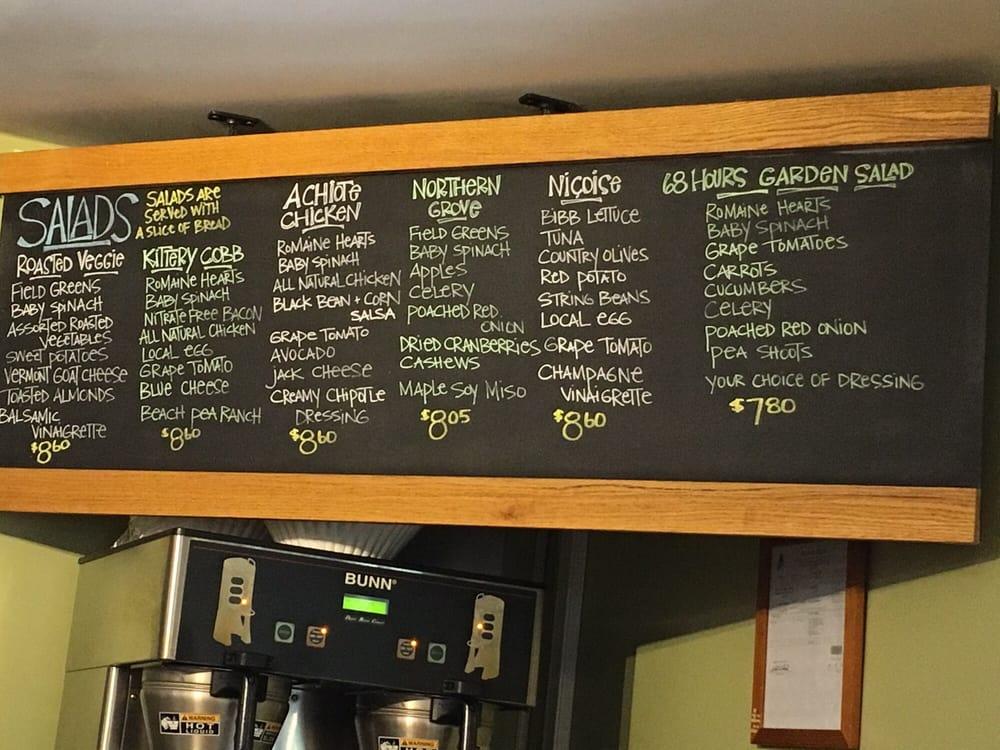 SALADS
SALADS ARE
SERVED WITH
A SLICE OF BREAD
ROASTED VEGGIE
FIELD GREENS
BABY SPINACH
ASSORTED ROASTED
VEGETABLES
SWEET POTATOES
VERMONT GOAT CHEESE
TOASTED ALMONDS
BALSAMIC
VINAIGRETTE
$8.60
KITTERY COBB
ROMAINE HEARTS
BABY SPINACH
NITRATE FREE BACON
ALL NATURAL CHICKEN
LOCAL EGG
GRAPE TOMATO
BLUE CHEESE
BEACH PEA RANCH
$8.60
ACHIOTE
CHICKEN
ROMAINE HEARTS
BABY SPINACH
ALL NATURAL CHICKEN
BLACK BEAN + CORN
SALSA
GRAPE TOMATO
AVOCADO
JACK CHEESE
CREAMY CHIPOTLE
DRESSING
$8.60
NORTHERN
GROVE
FIELD GREENS
BABY SPINACH
APPLES
CELERY
POACHED RED
ONION
DRIED CRANBERRIES
CASHEWS
MAPLE SOY MISO
$8.05
NIÇOISE
BIBB LETTUCE
TUNA
COUNTRY OLIVES
RED POTATO
STRING BEANS
LOCAL EGG
GRAPE TOMATO
CHAMPAGNE
VINAIGRETTE
$8.60
68 HOURS GARDEN SALAD
ROMAINE HEARTS
BABY SPINACH
GRAPE TOMATOES
CARROTS
CUCUMBERS
CELERY
POACHED RED ONION
PEA SHOOTS
YOUR CHOICE OF DRESSING
$7.80
BUNN®
WARNING
HOT
LIQUID
WARNING
HOT